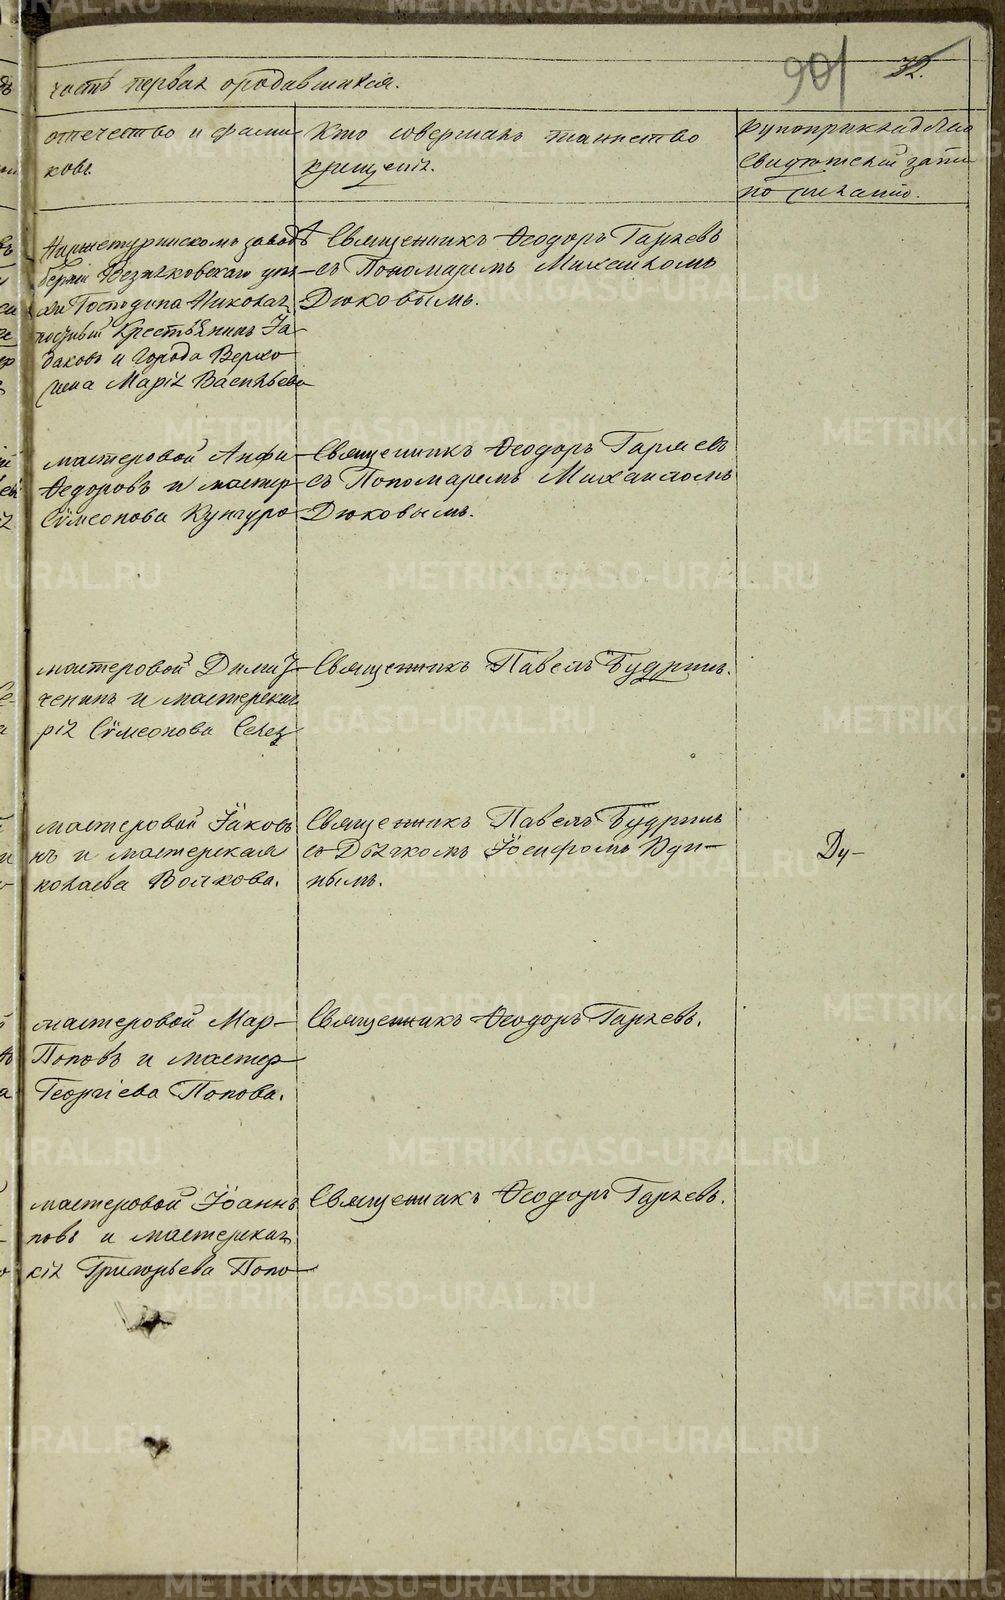 901 32.
часть первая о родившихся.
отчество и фами-
ковъ.
Кто совершалъ таинство
крещенія.
рукоприкладство
свидѣтелей запи
по желанію.
Нижнетуринскомъ заводѣ
берніи Везняковскаго уѣз
Господина Николая
Крестьянинъ Іа
баковъ и города Верхо
Марія Васильева
Священникъ Ѳеодоръ Гаряевъ
съ Пономаремъ Михаиломъ
Дюковымъ.
мастеровой Анфи
Ѳедоровъ и мастер
Сѷмеонова Кунгуро
Священникъ Ѳеодоръ Гаряевъ
съ Пономаремъ Михаиломъ
Дюковымъ.
мастеровой Дими
ченинъ и мастерская
рія Сѷмеонова Селез
Священникъ Павелъ Будринъ.
мастеровой Іаковъ
нъ и мастерская
колаева Волкова.
Священникъ Павелъ Будринъ
со Дьячкомъ Іосифомъ Уди-
нымъ.
Ду-
мастеровой Мар-
Поповъ и мастер
Георгіева Попова.
Священникъ Ѳеодоръ Гаряевъ.
мастеровой Іоаннъ
повъ и мастерская
кія Григорьева Попо
Священникъ Ѳеодоръ Гаряевъ.
METRIKI.GASO-URAL.RU